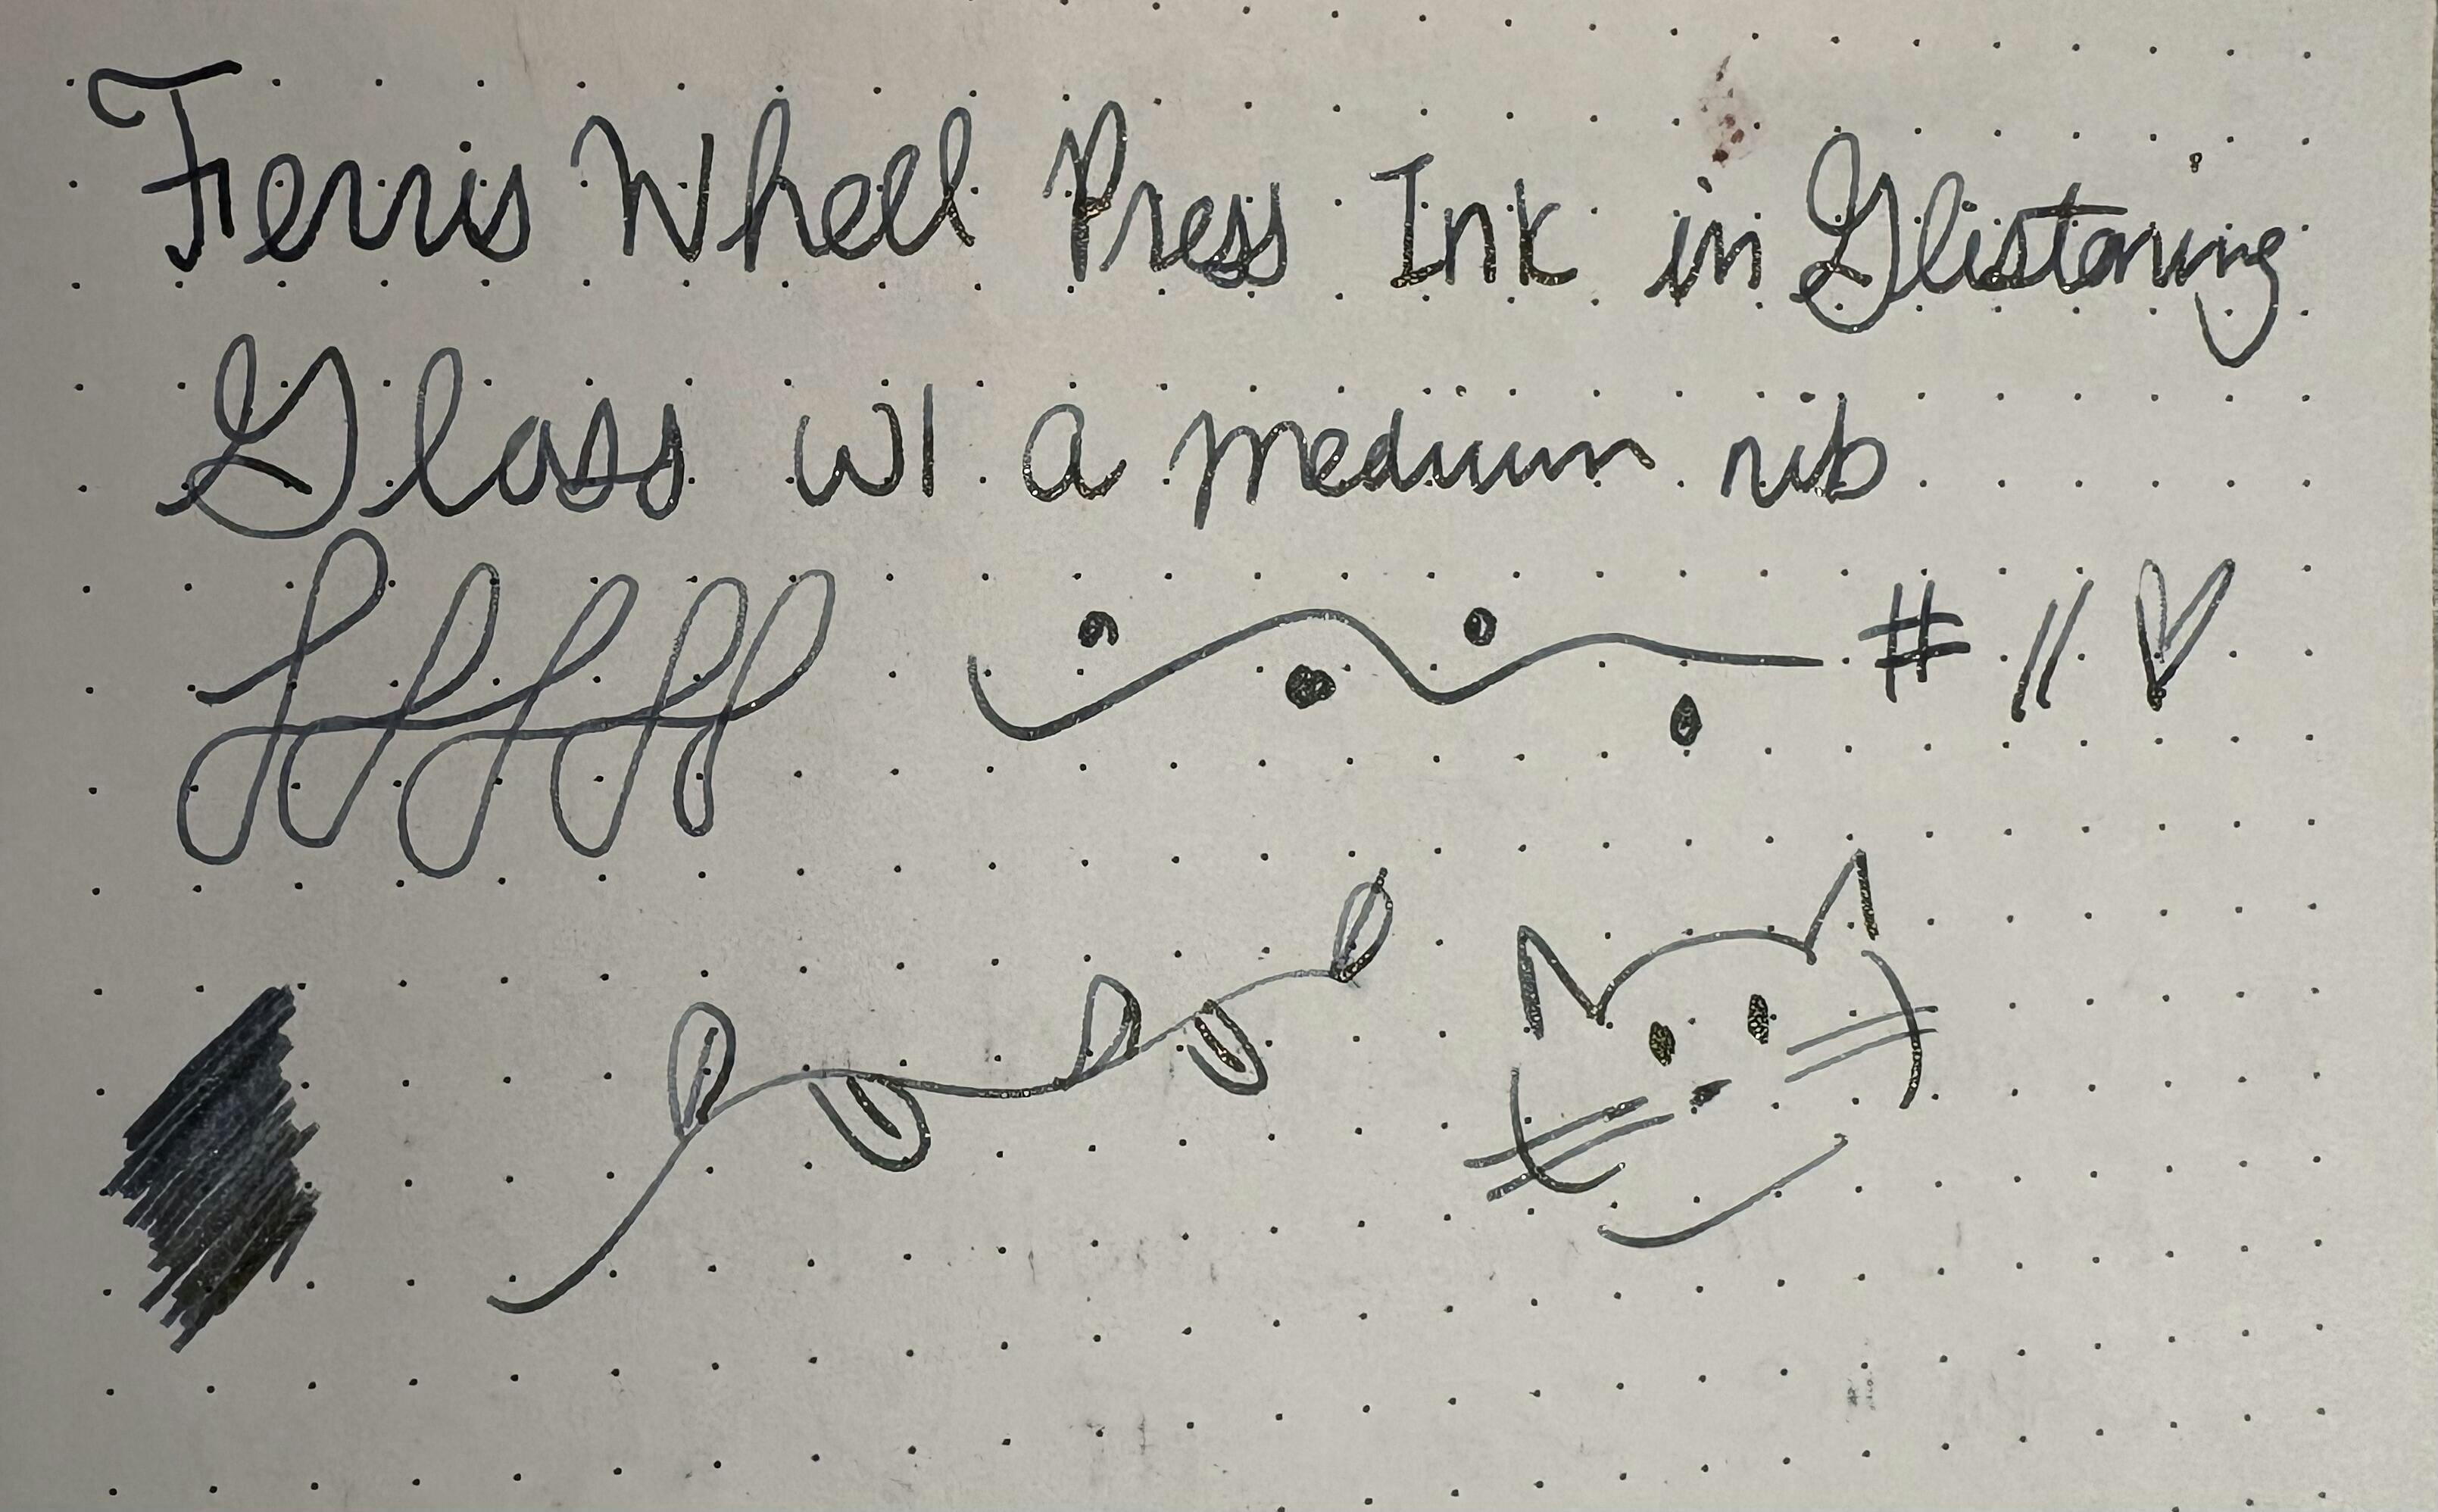 Ferris Wheel Press Ink in Glistening
Glass w/ a medium nib
fffff # //